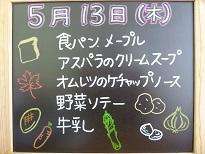 5月13日(木)
食パン メープル
アスパラのクリームスープ
オムレツのケチャップソース
野菜ソテー
牛乳